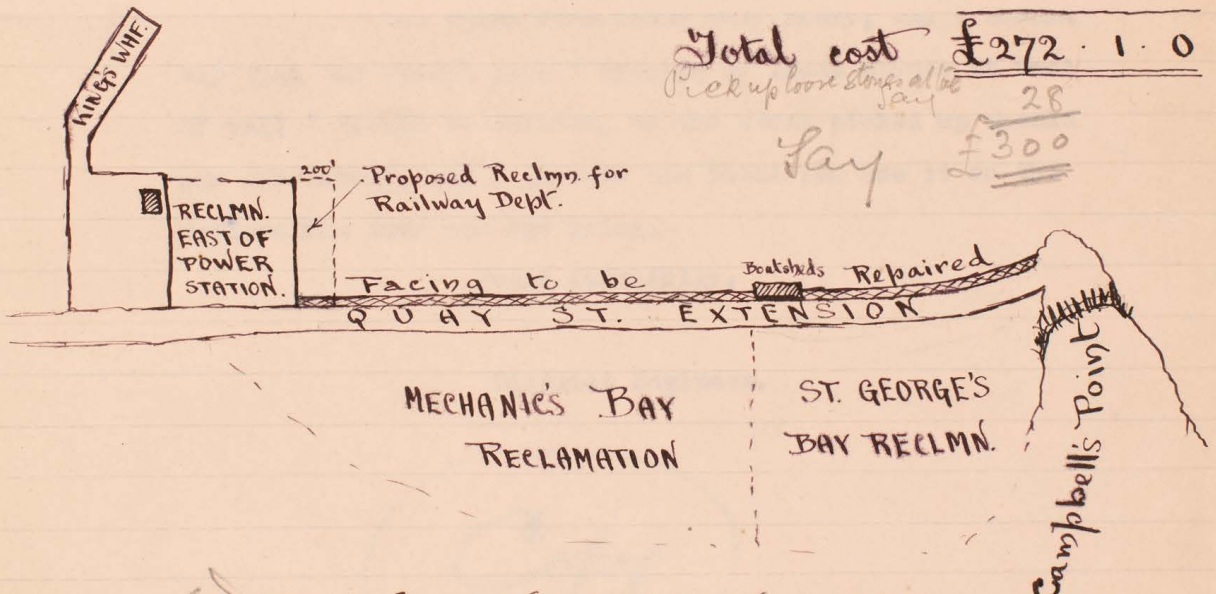 Total cost £272 . 1 . 0
Pick up loose stones at toe
Say 28
Say £300
KING'S WHF.
200'
Proposed Reclmn. for
Railway Dept.
RECLMN.
EAST OF
POWER
STATION.
Facing to be Repaired
Boatsheds
QUAY ST. EXTENSION
MECHANIC'S BAY
RECLAMATION
ST. GEORGE'S
BAY RECLMN.
Campbell's Point